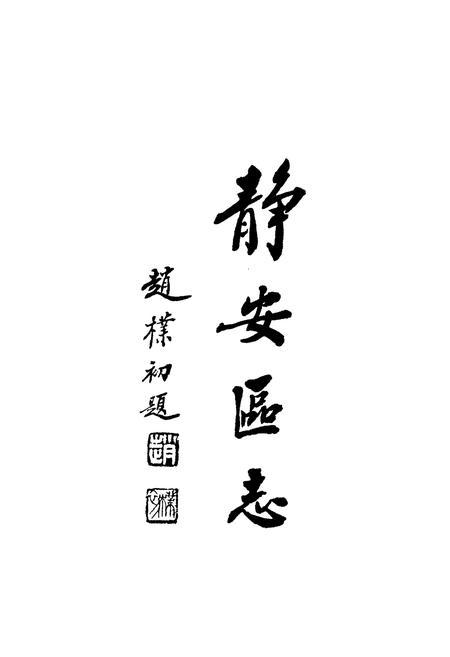 静安區志
趙樸初題
趙
樸初